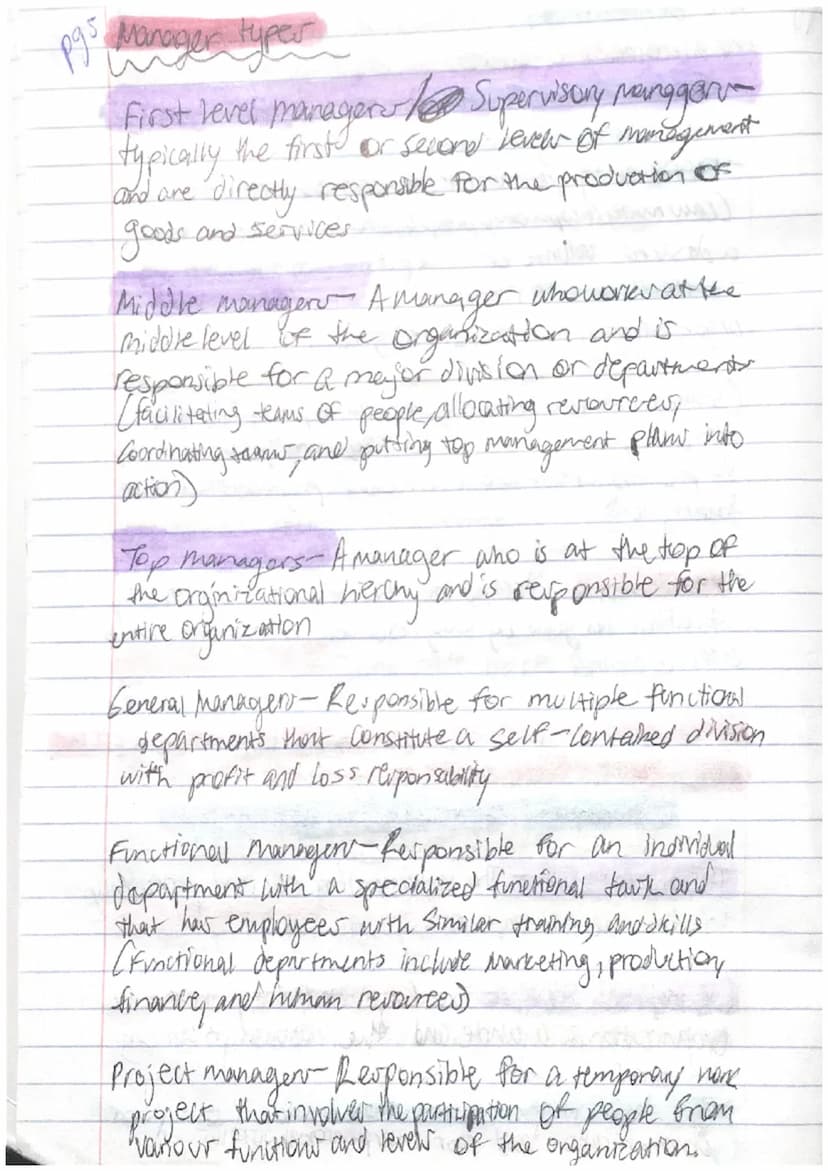 pg5 Manager types
First level managers/ Supervisory managers-
typically the first or second levels of management
and are directly responsible for the production of
goods and services
Middle managers- A manager who works at the
middle level of the organization and is
responsible for a major division or departments
(facilitating teams of people, allocating resources,
Coordinating teams, and putting top management plans into
action)
Top managers- A manager who is at the top of
the orginizational hierchy and is responsible for the
entire organization
General Managers- Responsible for multiple functional
departments that constitute a self-contained division
with profit and loss responsability
Functional managers- Responsible for an individual
department with a specialized functional task and
that has employees with similar training and skills
(Functional departments include marketing, production,
finance, and human resources)
Project managers- Responsible for a temporary work
project that involves the participation of people from
various funitions and levels of the organization.